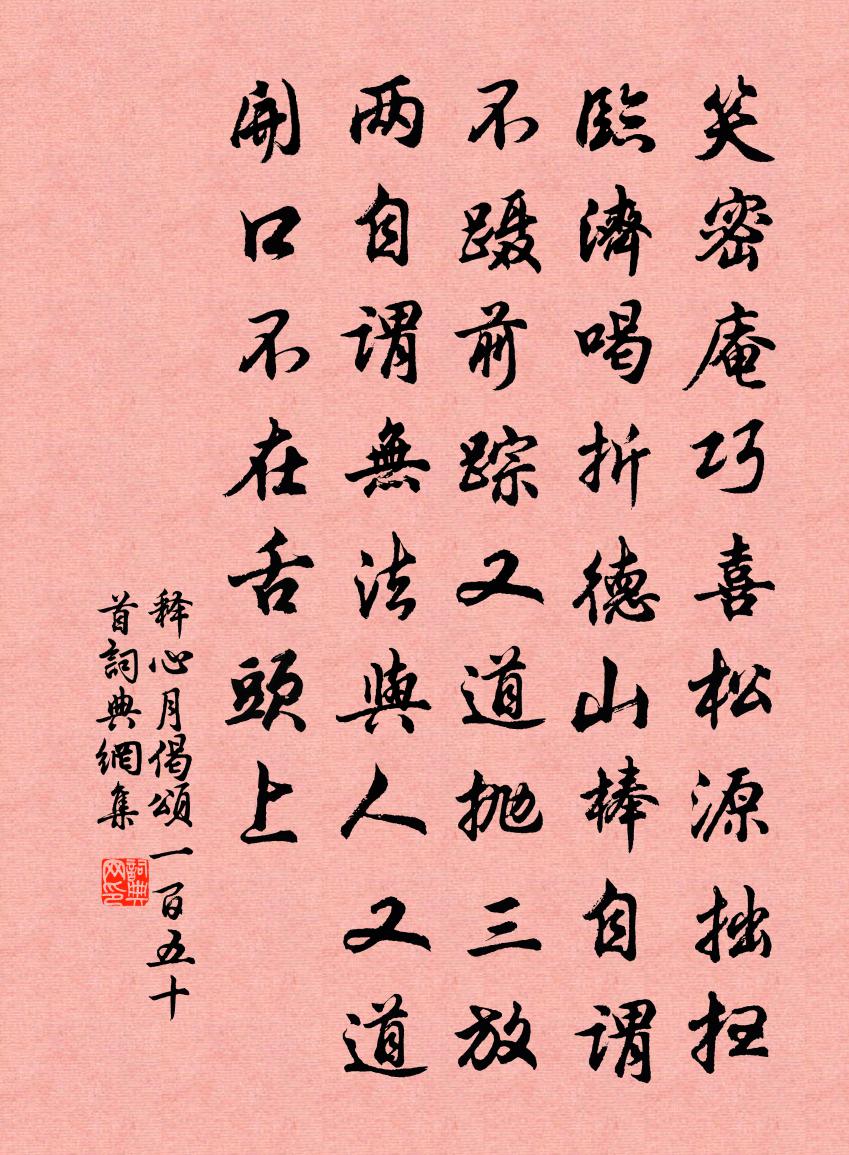 笑密庵巧喜松源拙扭
臨濟喝折德山棒自謂
不蹑前踪又道抛三放
两自謂無法與人又道
開口不在舌頭上
释心月偈頌一百五十
首詞典網集
詞典
网印